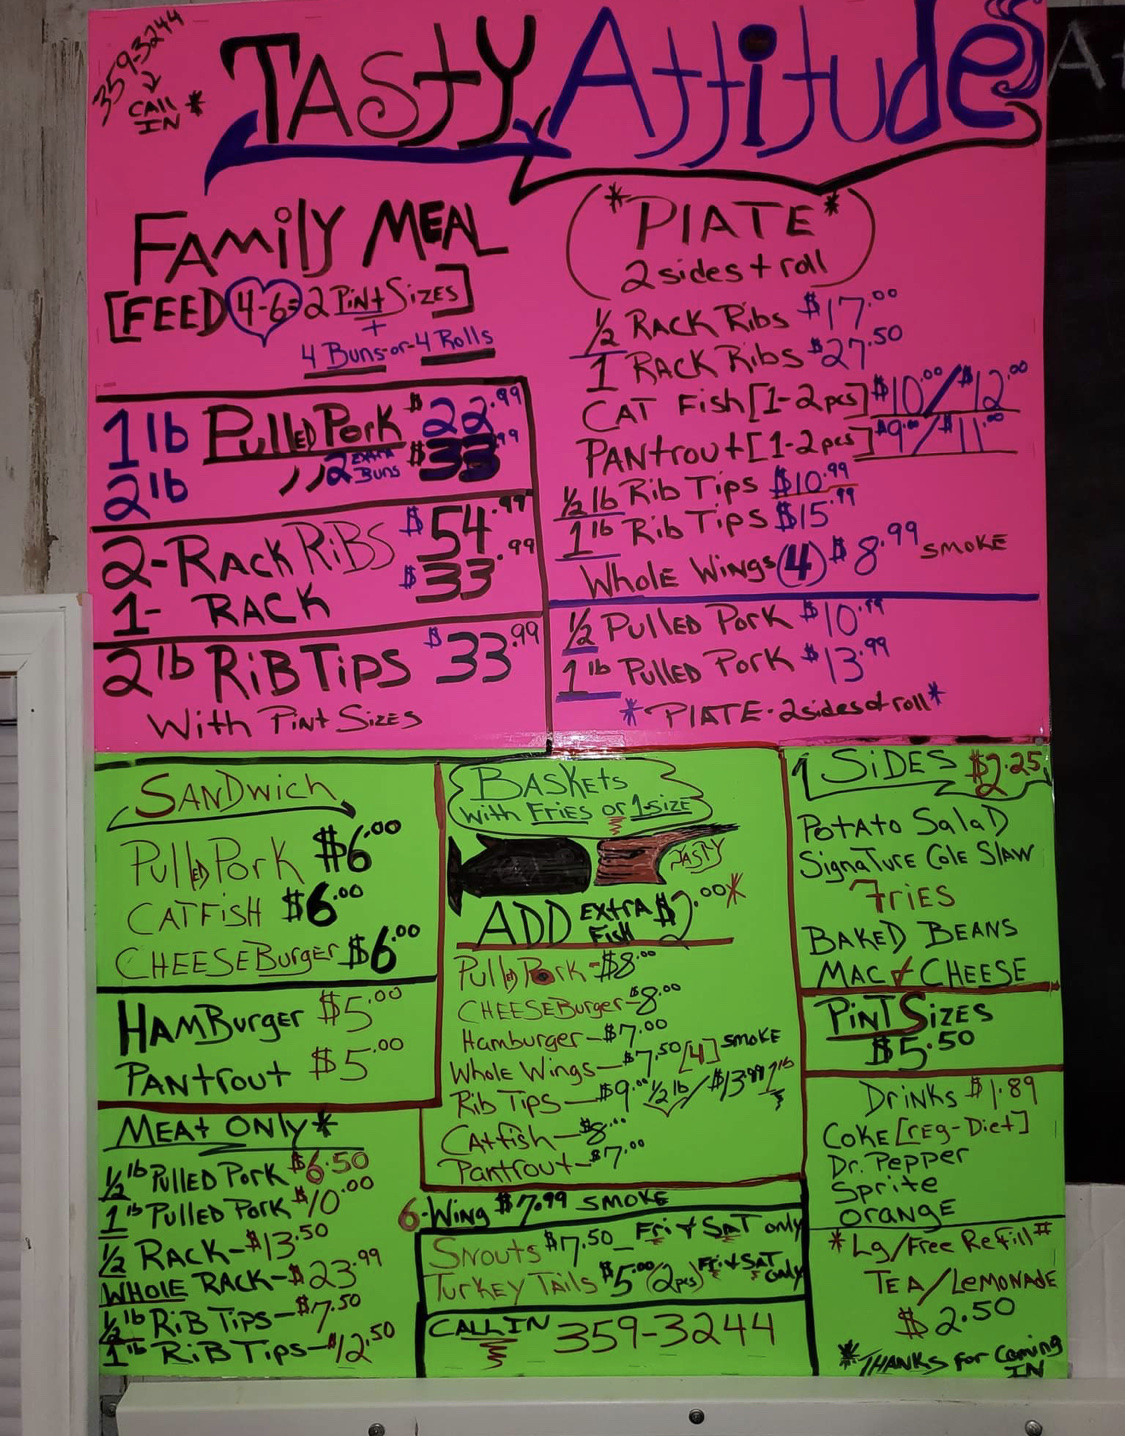 359-3244
CALL IN *
TASTY Attitudes
FAMilY MEAL
[FEED 4-6= 2 Pint Sizes]
+
4 Buns-or-4 Rolls
1 lb Pulled Pork $22.99
2 lb " 2 EXTRA Buns $33.99
2-RACK RiBS $54.99
1- RACK $33.99
2 lb RiB TiPS $33.99
With Pint Sizes
(*PlATE*)
2 sides + roll
1/2 RACK Ribs $17.00
1 RACK Ribs $27.50
CAT Fish [1-2 pcs] $10.00/$12.00
PANtrout [1-2 pcs] $9.00/$11.00
1/2 lb Rib Tips $10.99
1 lb Rib Tips $15.99
Whole Wings (4) $8.99 smoke
1/2 Pulled Pork $10.99
1 lb Pulled Pork $13.99
*PlATE-2 sides & roll*
SANDwich
Pulled Pork $6.00
CATFisH $6.00
CHEESEBurger $6.00
HAMBurger $5.00
PANtrout $5.00
MEAt ONLY*
1/2 lb Pulled Pork $6.50
1 lb Pulled Pork $10.00
1/2 RACK-$13.50
WHOLE RACK-$23.99
1/2 lb RiB Tips-$7.50
1 lb RiB Tips-$12.50
BASKETs
with FRiES or 1-size
TASTY
ADD EXTRA Fish $2.00*
Pulled Pork-$8.00
CHEESEBurger-$8.00
Hamburger-$7.00
Whole Wings-$7.50 [4] smoke
Rib Tips-$9.00 1/2 lb/$13.99 1 lb
Catfish-$8.00
Pantrout-$7.00
6-Wing $7.99 SMOKE
Snouts $7.50 - Fri & SAT only
Turkey Tails $5.00 (2pcs) Fri & SAT only
CALL IN 359-3244
SiDES $2.25
POTATO SalaD
SignaTure Cole Slaw
Fries
BAKED BEANS
MAC & CHEESE
PiNT Sizes
$5.50
Drinks $1.89
COKE [reg-Diet]
Dr. Pepper
Sprite
Orange
*Lg/Free Refill*
TEA/LemoNADE
$2.50
*THANKS for Coming IN